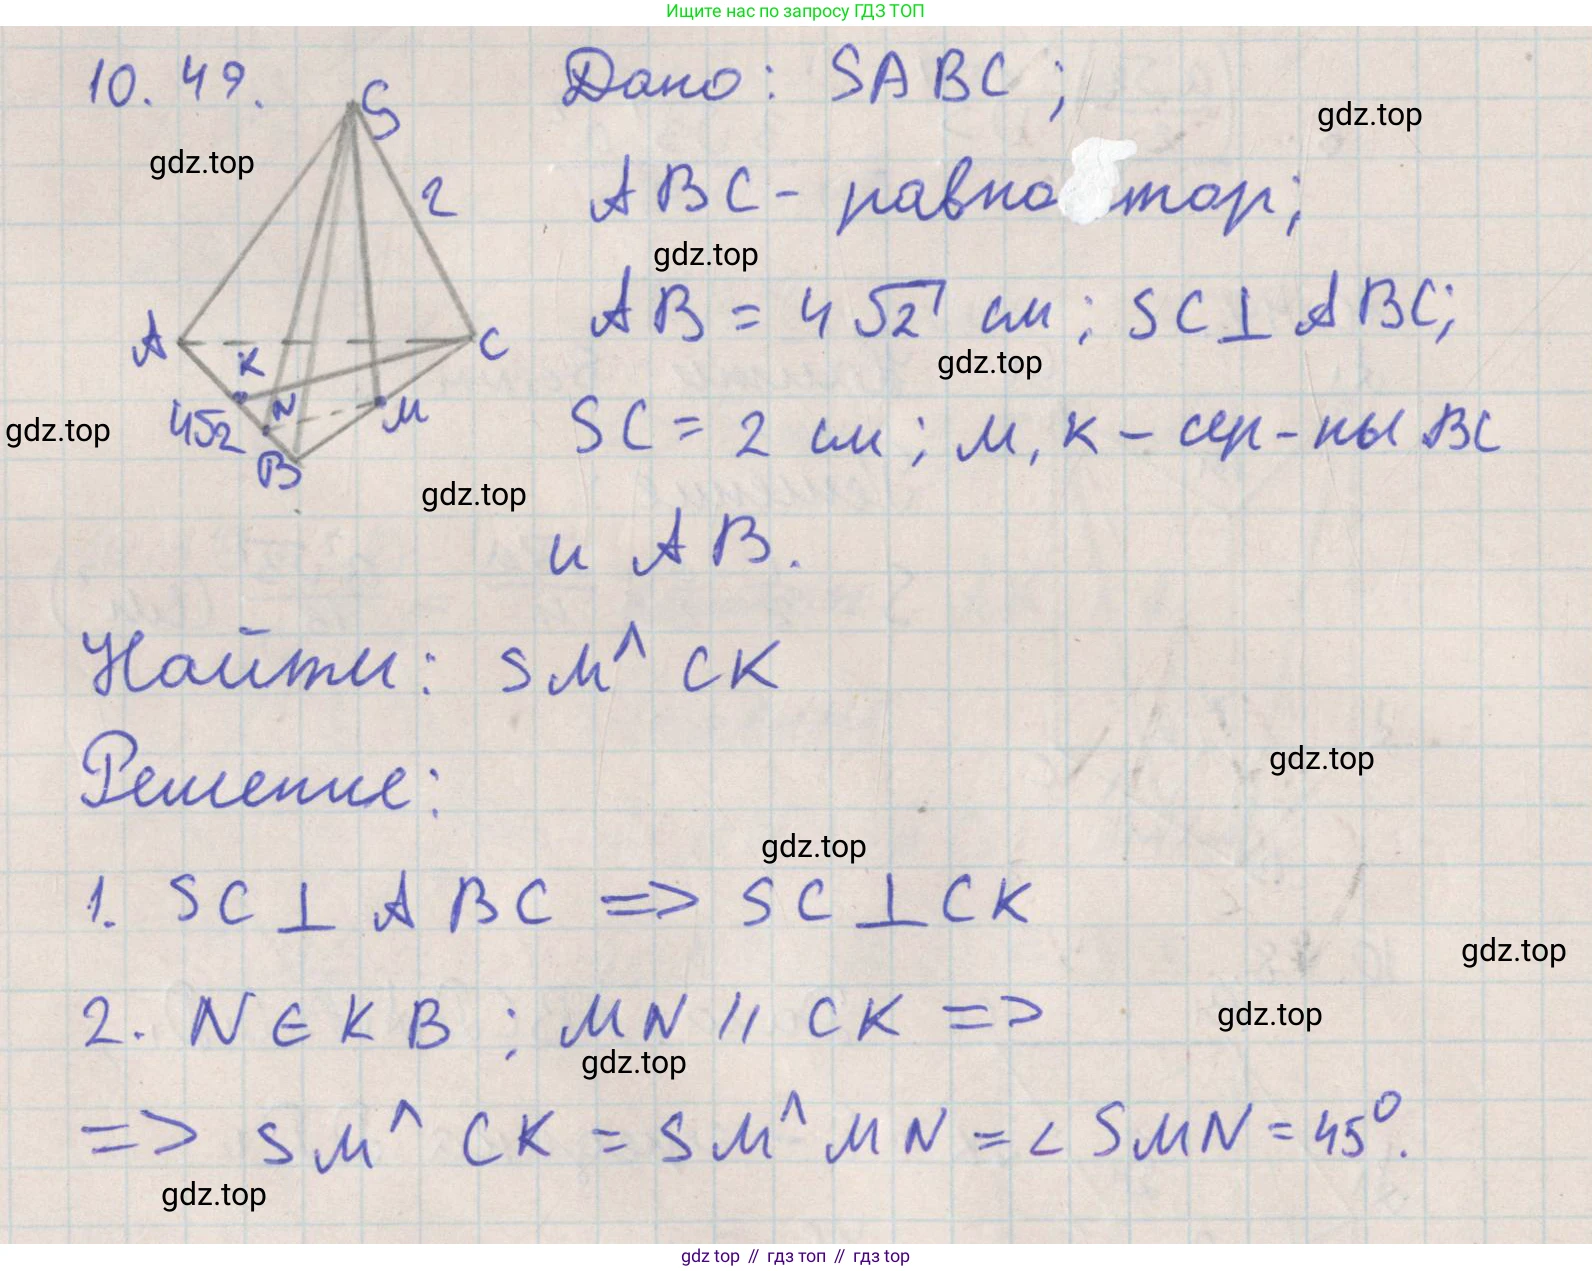 Ищите нас по запросу ГДЗ ТОП
10.49.
S
Дано: SABC;
gdz.top
gdz.top
2
ABC - равностор;
gdz.top
AB = 4√2 см; SC⊥ABC;
A
C
K
gdz.top
N
M
4√2
gdz.top
SC = 2 см; M, K - сер-ны BC
B
gdz.top
и AB.
Найти: SM^CK
Решение:
gdz.top
gdz.top
1. SC⊥ABC => SC⊥CK
gdz.top
2. N∈KB; MN || CK =>
gdz.top
gdz.top
=> SM^CK = SM^MN = ∠SMN = 45°.
gdz.top
gdz top // гдз топ // гдз top